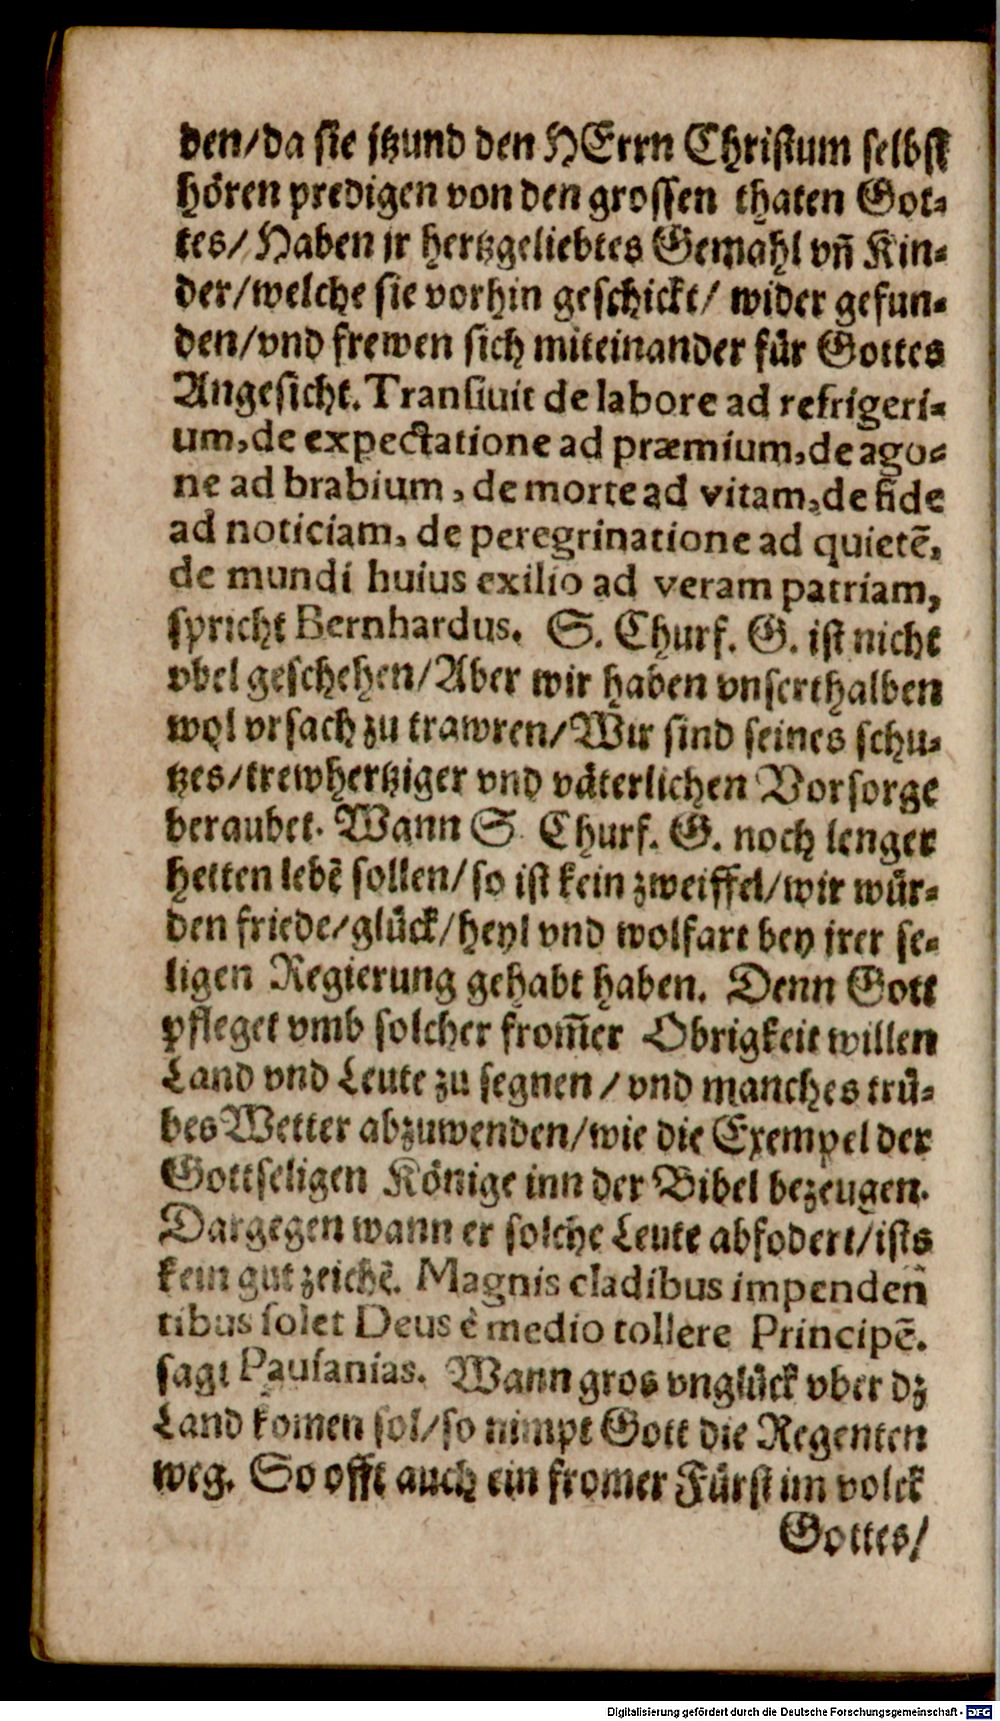 den/da sie jtzund den HErrn Christum selbst
hören predigen von den grossen thaten Got-
tes/Haben jr hertzgeliebtes Gemahl vn̄ Kin-
der/welche sie vorhin geschickt/ wider gefun-
den/vnd frewen sich miteinander für Gottes
Angesicht. Transiuit de labore ad refrigeri-
um, de expectatione ad præmium, de ago-
ne ad brabium, de morte ad vitam, de fide
ad noticiam, de peregrinatione ad quietē,
de mundi huius exilio ad veram patriam,
spricht Bernhardus. S. Churf. G. ist nicht
vbel geschehen/Aber wir haben vnserthalben
wol vrsach zu trawren/Wir sind seines schu-
tzes/trewhertziger vnd väterlichen Vorsorge
beraubet. Wann S. Churf. G. noch lenger
hetten lebē sollen/so ist kein zweiffel/wir wür-
den friede/glück/heyl vnd wolfart bey jrer se-
ligen Regierung gehabt haben. Denn Gott
pfleget vmb solcher from̄er Obrigkeit willen
Land vnd Leute zu segnen/vnd manches trü-
bes Wetter abzuwenden/wie die Exempel der
Gottseligen Könige inn der Bibel bezeugen.
Dargegen wann er solche Leute abfodert/ists
kein gut zeichē. Magnis cladibus impenden̄
tibus solet Deus è medio tollere Principē.
sagt Pausanias. Wann gros vnglück vber dz
Land komen sol/so nimpt Gott die Regenten
weg. So offt auch ein fromer Fürst im volck
Gottes/
Digitalisierung gefördert durch die Deutsche Forschungsgemeinschaft - DFG